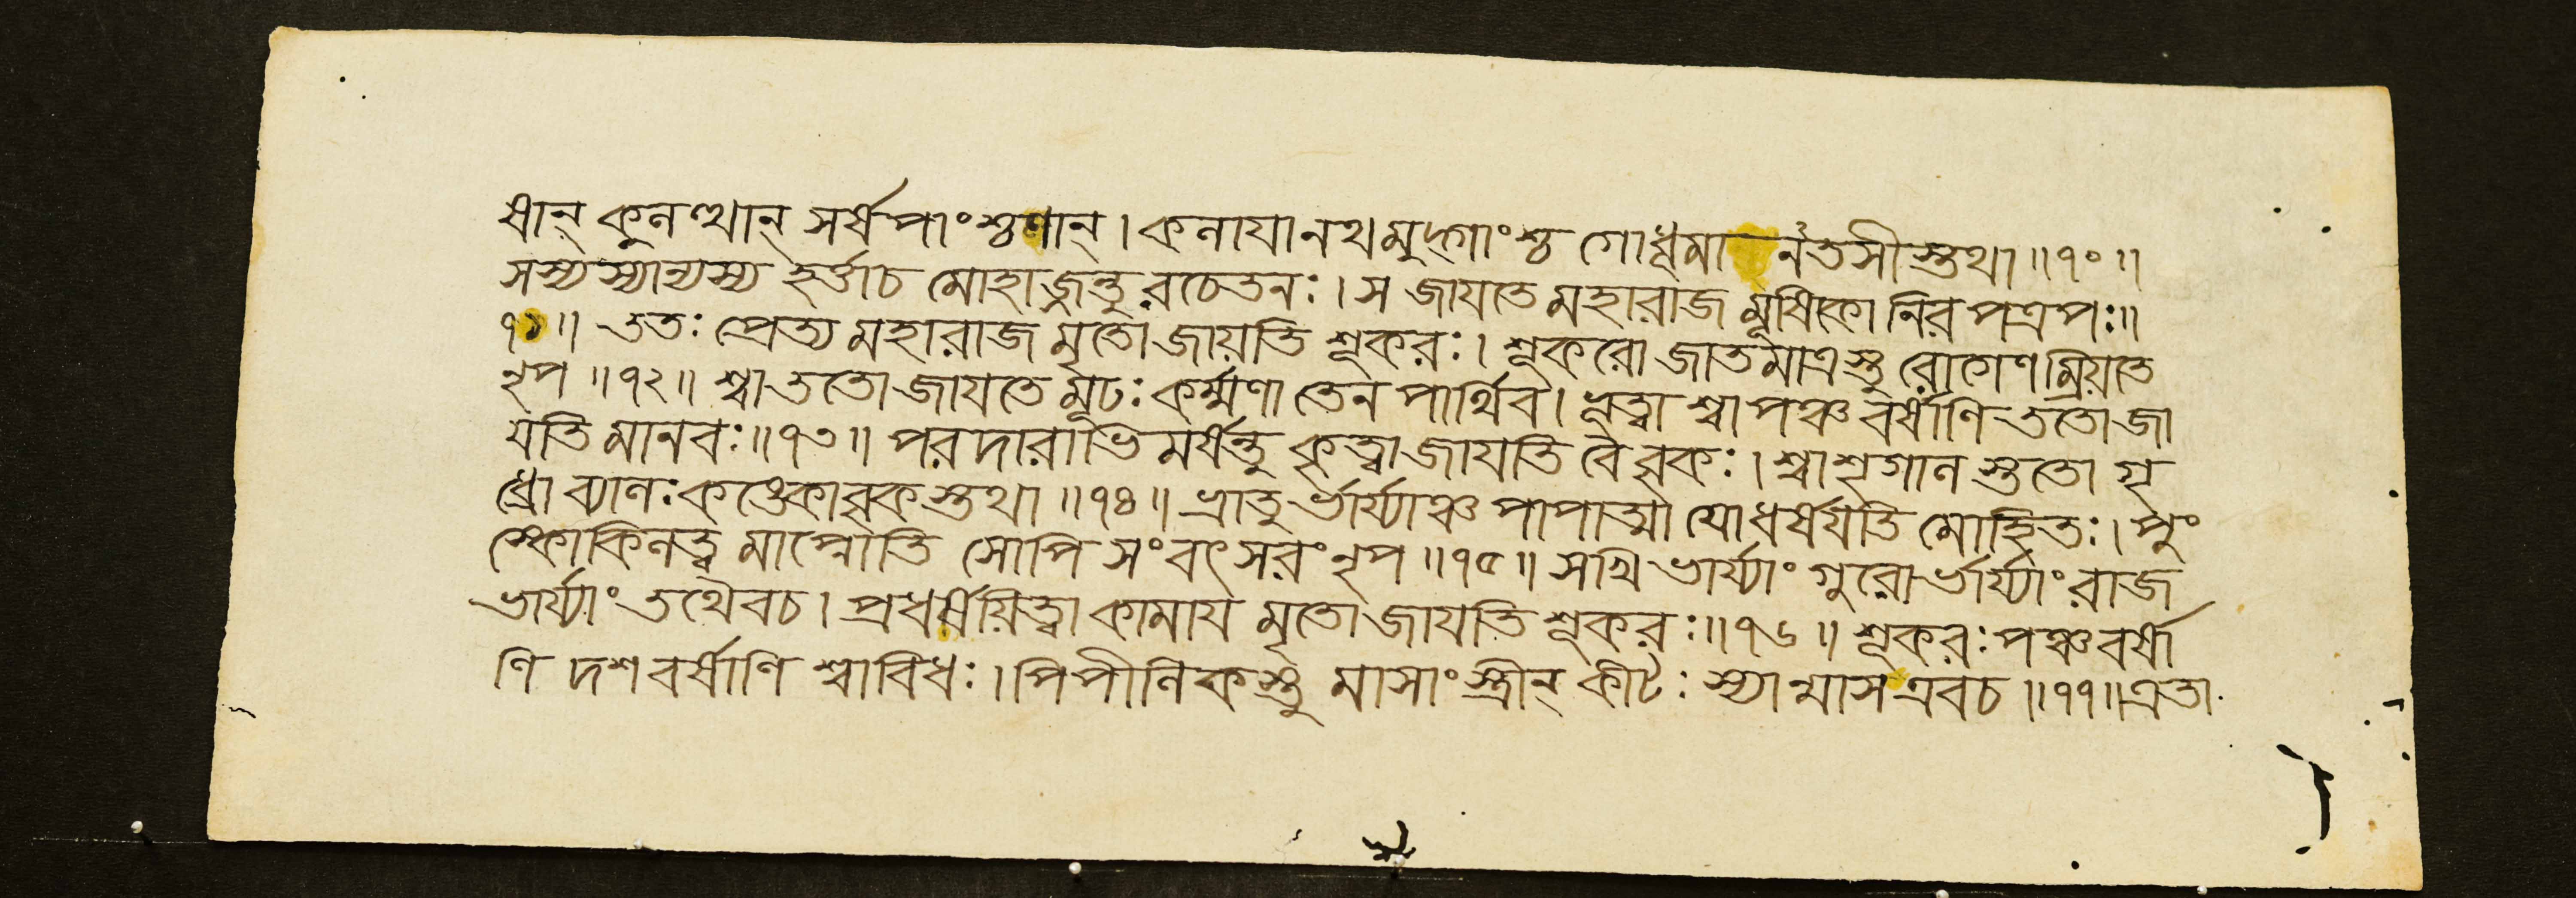 ষান্ কুলত্থান্ সর্ষপাংশ্চণান্। কলাযানথমুদ্গাংশ্চ গোধূমানতসীস্তথা॥৭০॥
সস্যস্যান্যস্য হর্ত্তাচ মোহাজ্জন্তুরচেতনঃ। স জাযতে মহারাজ মূষিকো নিরপত্রপঃ॥
৭১॥ ততঃ প্রেত্য মহারাজ মৃতো জায়তি শূকরঃ। শূকরো জাতমাত্রস্তু রোগেণ ম্রিয়তে
নৃপ॥৭২॥ শ্বা ততো জাযতে মূঢঃ কর্ম্মণা তেন পার্থিব। ভূত্বা শ্বা পঞ্চ বর্ষাণি ততো জা
যতি মানবঃ॥৭৩॥ পরদারাভিমর্ষন্তু কৃত্বা জাযতি বৈ বৃকঃ। শ্বা শৃগালস্ততো গৃ
ধ্রো ব্যালঃ কঙ্কো বকস্তথা॥৭৪॥ ভ্রাতুর্ভার্য্যাঞ্চ পাপাত্মা যোধর্ষয়তি মোহিতঃ। পুং
স্কোকিলত্বমাপ্নোতি সোপি সংবৎসরং নৃপ॥৭৫॥ সখিভার্য্যাং গুরোর্ভার্য্যাং রাজ
ভার্য্যাং তথৈবচ। প্রধর্ষয়িত্বা কামায মৃতো জাযতি শূকরঃ॥৭৬॥ শূকরঃ পঞ্চ বর্ষা
ণি দশ বর্ষাণি শ্বাবিধঃ। পিপীলিকস্তু মাসাংস্ত্রীন্ কীটঃ স্যান্মাস এবচ॥৭৭॥এতা